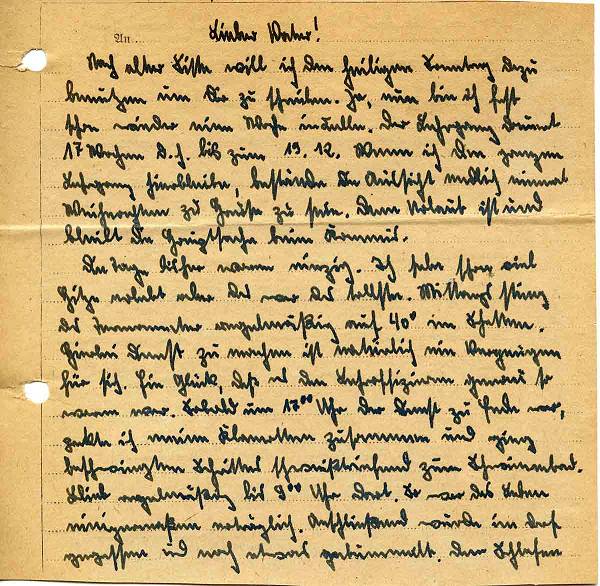 An
Lieber Vater!
Nach alter Sitte will ich den heiligen Sonntag dazu
benutzen um Dir zu schreiben. Ja, nun bin ich fast
schon wieder eine Woche in Tulln. Der Lehrgang dauert
17 Wochen d.h. bis zum 19.12. Wenn ich den ganzen
Lehrgang hierbleibe, bestände die Aussicht endlich einmal
Weihnachten zu Hause zu sein. Denn Urlaub ist und
bleibt die Hauptsache beim Kommis.
Die Tage bisher waren einzig. Ich habe schon viel
Hitze erlebt aber das war das tollste. Mittags stieg
das Termometer regelmäßig auf 40° im Schatten.
Hierbei Dienst zu machen ist natürlich ein Vergnügen
für sich. Ein Glück, daß es den Lehroffizieren genau so
warm war. Sobald um 17⁰⁰ Uhr der Dienst zu Ende war,
packte ich meine Klamotten zusammen und ging
beschwingten Schrittes schweißtriefend zum Schwimmbad.
Blieb regelmäßig bis 8⁰⁰ Uhr dort. So war das Leben
einigermaßen erträglich. Anschließend wurde im Dorf
gegessen und noch etwas gebummelt. Dem Schlafen